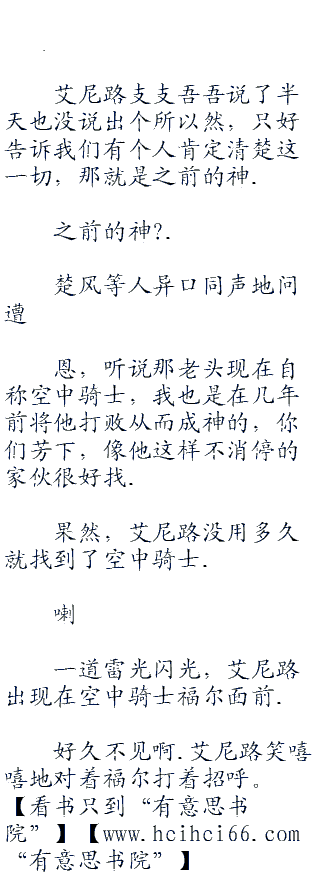 艾尼路支支吾吾说了半
天也没说出个所以然，只好
告诉我们有个人肯定清楚这
一切，那就是之前的神.
之前的神?.
楚风等人异口同声地问
遭
恩，听说那老头现在自
称空中骑士，我也是在几年
前将他打败从而成神的，你
们芳下，像他这样不消停的
家伙很好找.
果然，艾尼路没用多久
就找到了空中骑士.
喇
一道雷光闪光，艾尼路
出现在空中骑士福尔面前.
好久不见啊.艾尼路笑嘻
嘻地对着福尔打着招呼。
【看书只到“有意思书
院”】【www.hcihci66.com
“有意思书院”】